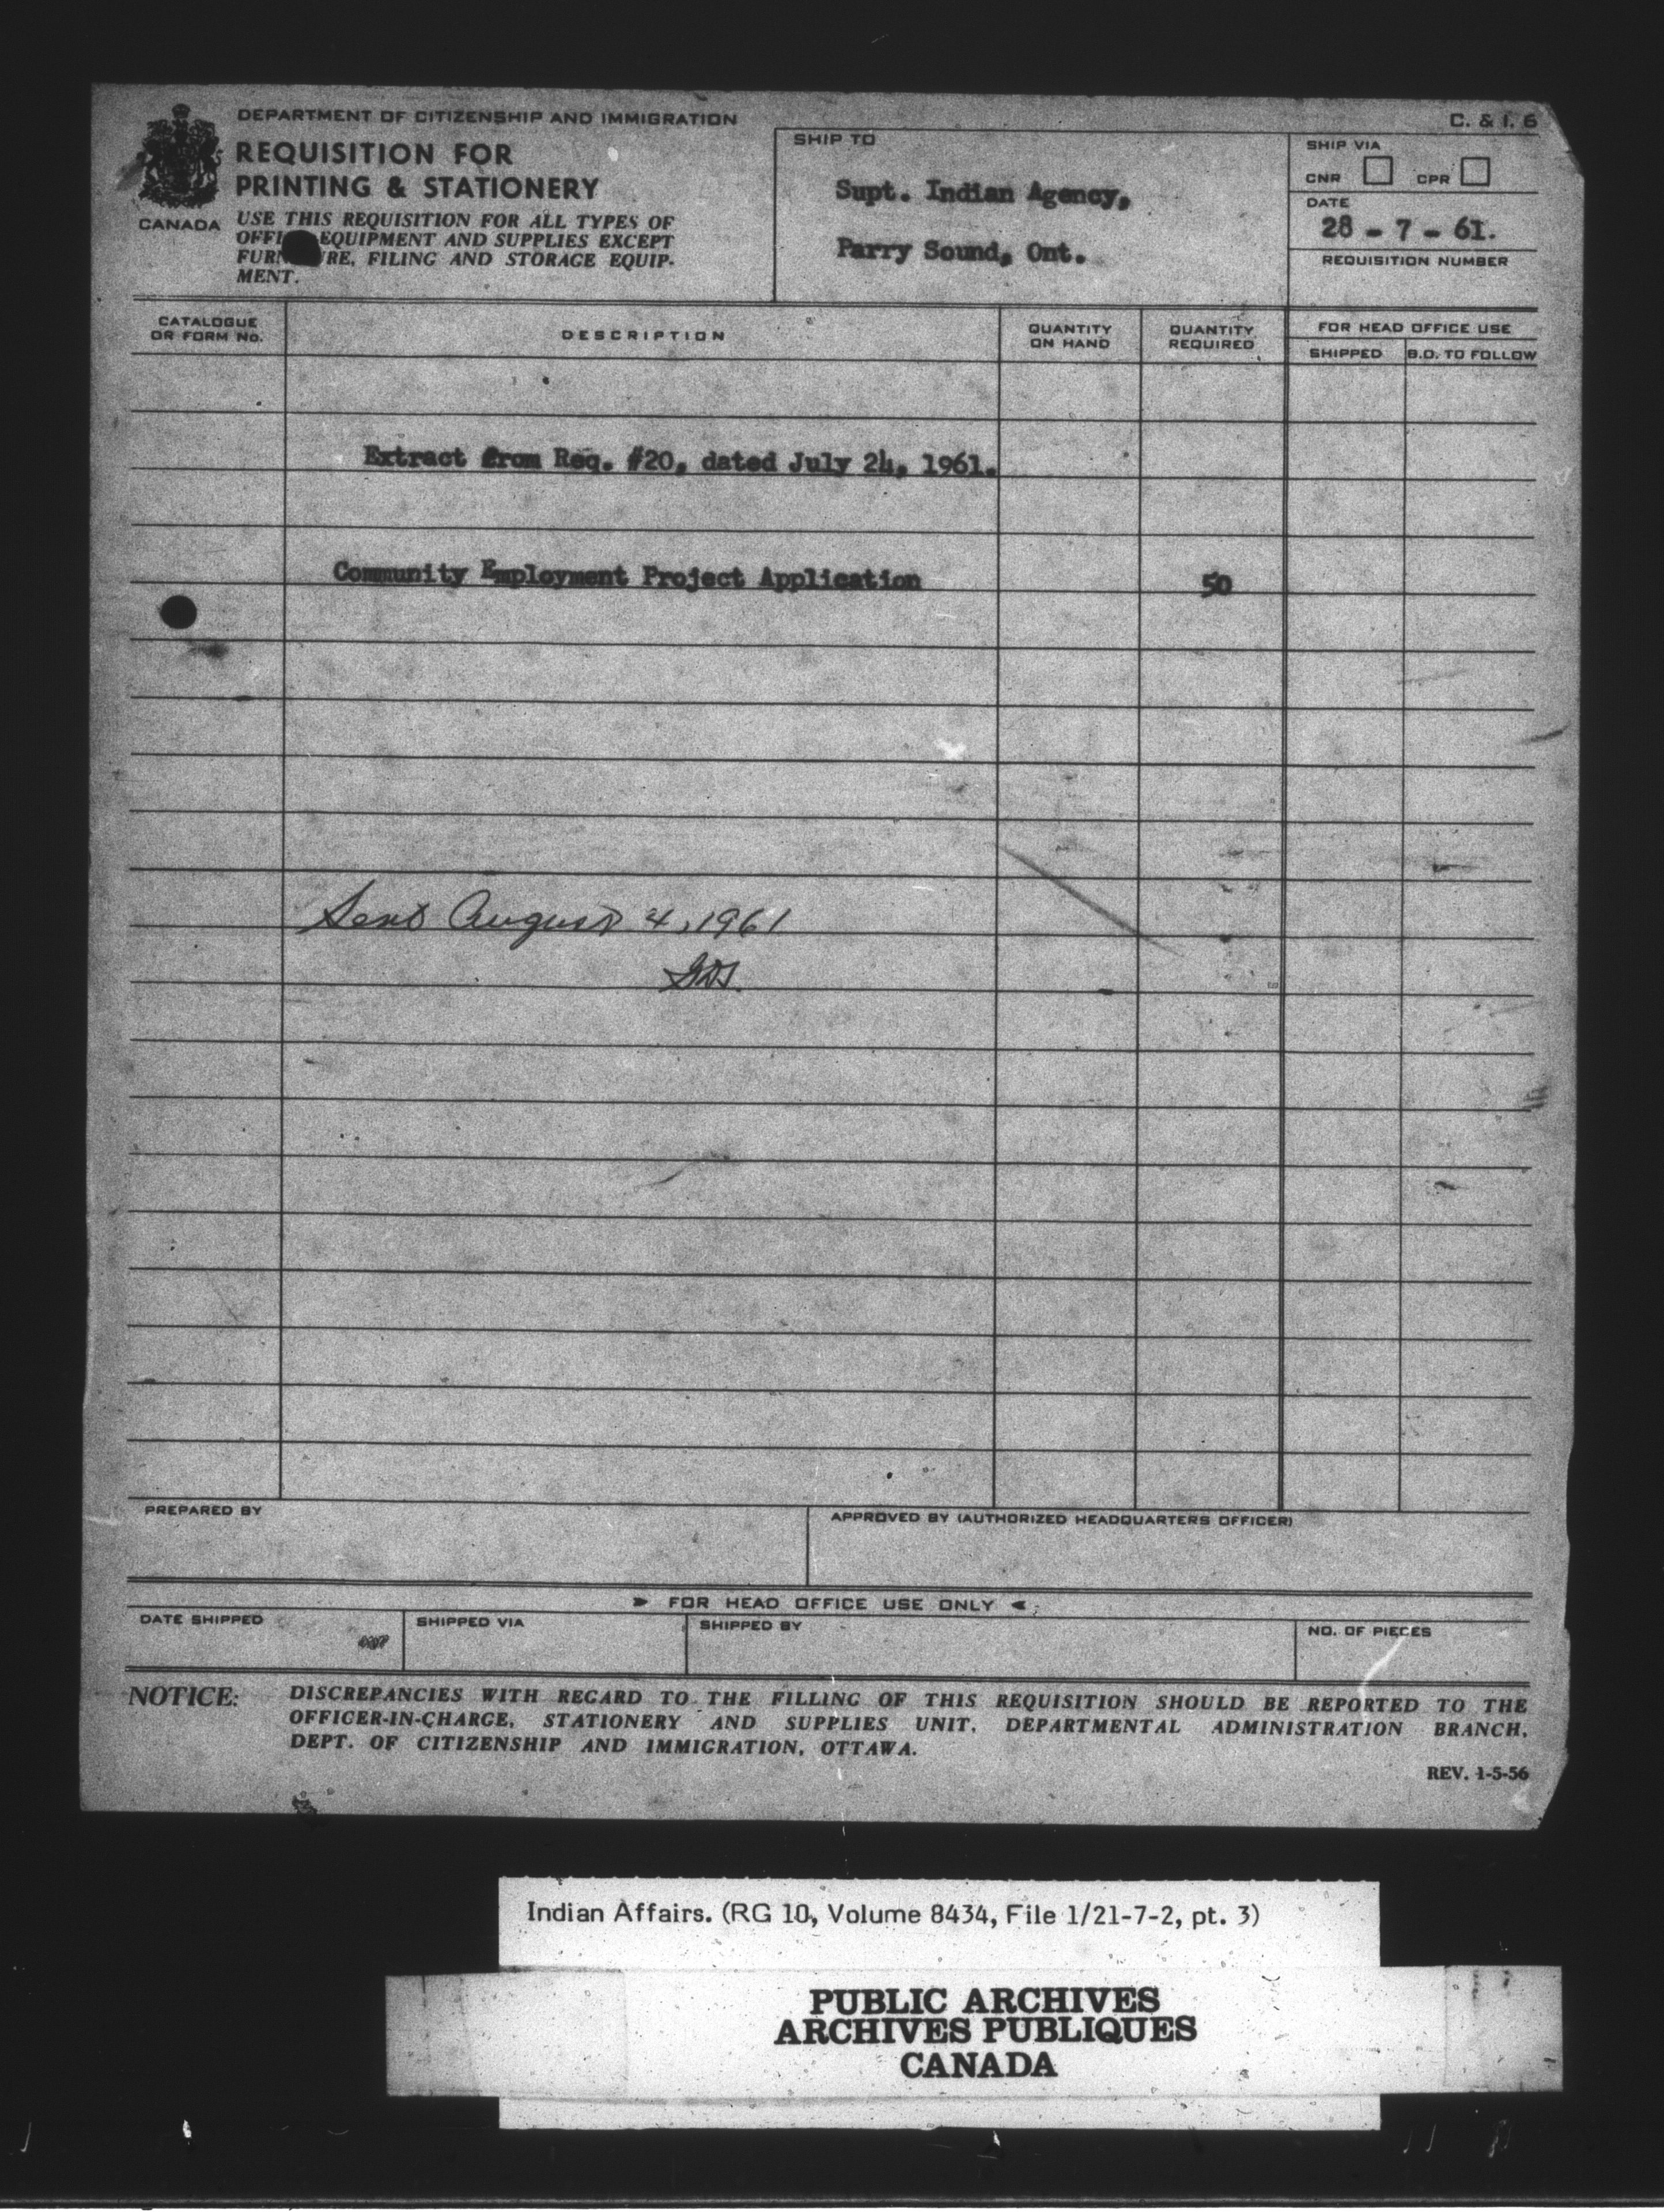 DEPARTMENT OF CITIZENSHIP AND IMMIGRATION
C. & I. 6
REQUISITION FOR
PRINTING & STATIONERY
CANADA
USE THIS REQUISITION FOR ALL TYPES OF
OFFI EQUIPMENT AND SUPPLIES EXCEPT
FURN RE, FILING AND STORAGE EQUIP-
MENT.
SHIP TO
Supt. Indian Agency,
Parry Sound, Ont.
SHIP VIA
CNR CPR
DATE
28 - 7 - 61.
REQUISITION NUMBER
CATALOGUE
OR FORM No.
DESCRIPTION
QUANTITY
ON HAND
QUANTITY
REQUIRED
FOR HEAD OFFICE USE
SHIPPED B.O. TO FOLLOW
Extract from Req. #20, dated July 24, 1961.
Community Employment Project Application 50
Sent August 4, 1961
PREPARED BY
APPROVED BY (AUTHORIZED HEADQUARTERS OFFICER)
FOR HEAD OFFICE USE ONLY
DATE SHIPPED
SHIPPED VIA
SHIPPED BY
NO. OF PIECES
NOTICE: DISCREPANCIES WITH REGARD TO THE FILLING OF THIS REQUISITION SHOULD BE REPORTED TO THE
OFFICER-IN-CHARGE, STATIONERY AND SUPPLIES UNIT, DEPARTMENTAL ADMINISTRATION BRANCH,
DEPT. OF CITIZENSHIP AND IMMIGRATION, OTTAWA.
REV. 1-5-56
Indian Affairs. (RG 10, Volume 8434, File 1/21-7-2, pt. 3)
PUBLIC ARCHIVES
ARCHIVES PUBLIQUES
CANADA